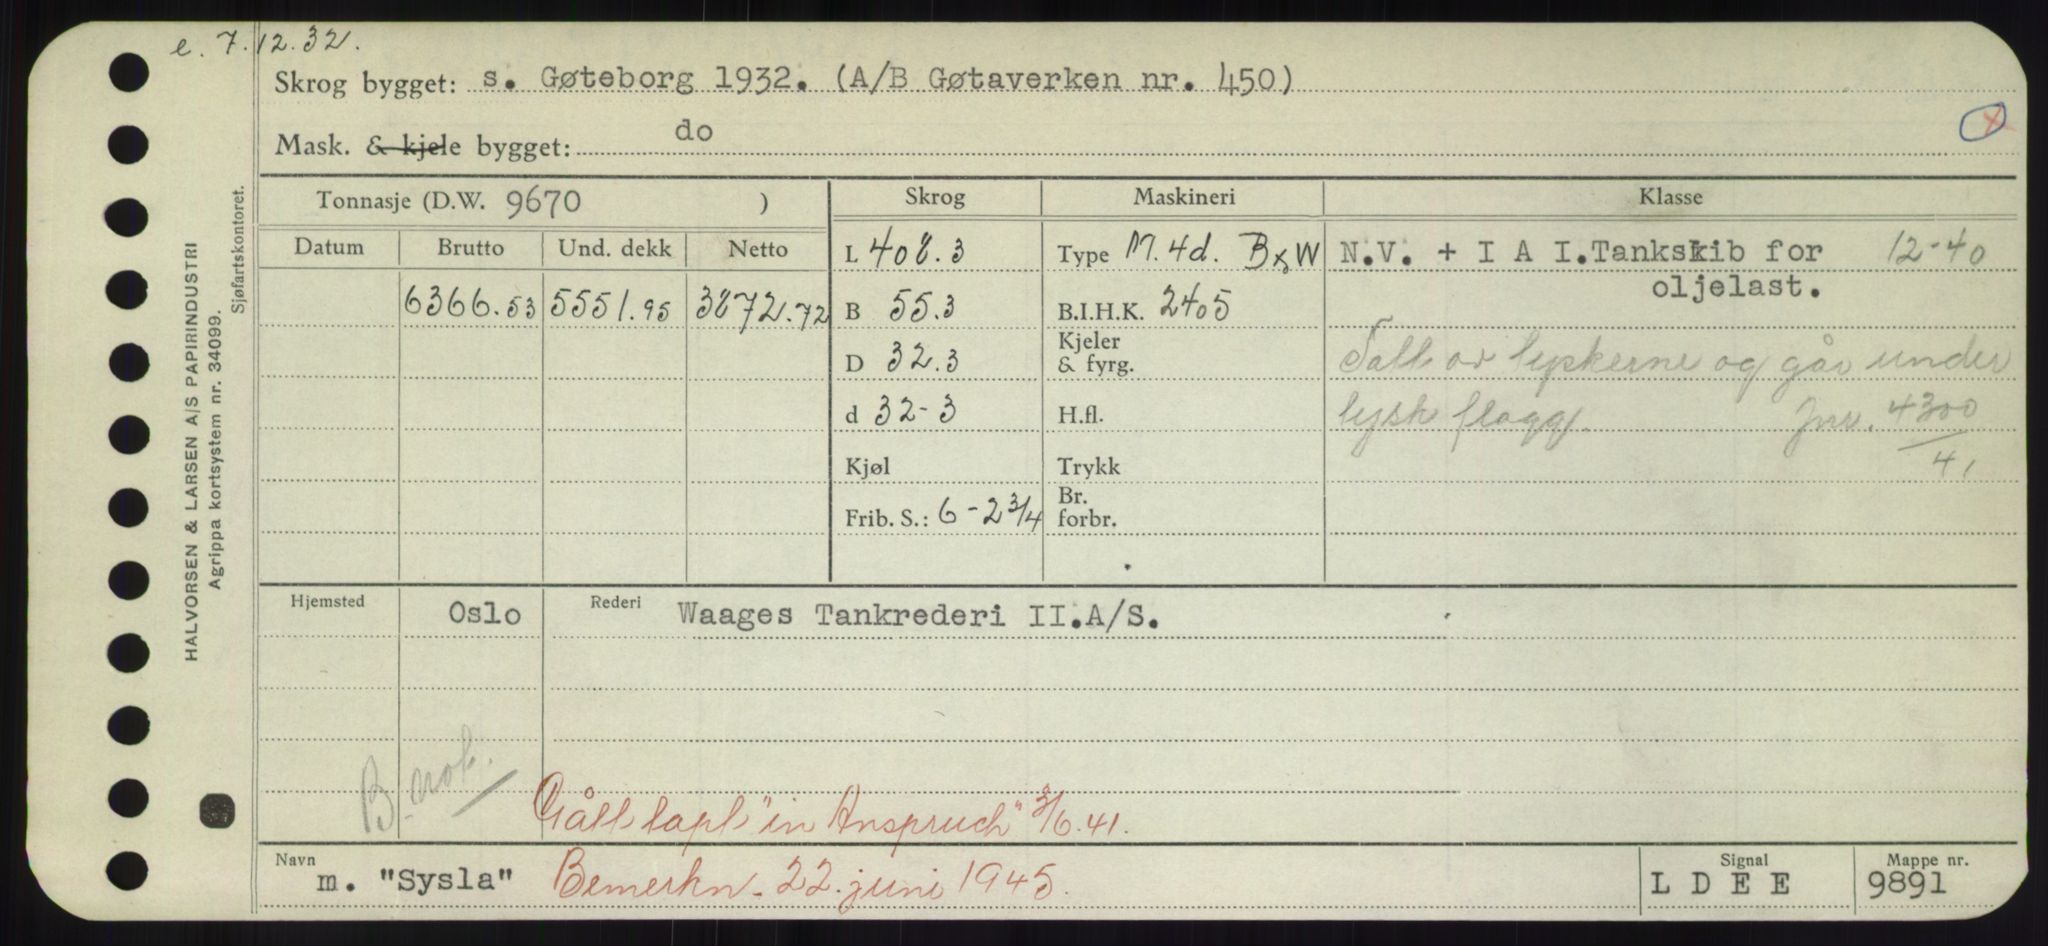 e. 7.12.32.
Skrog bygget: s. Gøteborg 1932. (A/B Gøtaverken nr. 450)
Mask. & kjele bygget: do
Tonnasje (D.W. 9670 ) Skrog Maskineri Klasse
Datum Brutto Und. dekk Netto L 408.3 Type M. 4d. B&W N.V. + I A I.Tankskib for 12-40
oljelast.
6366.53 5551.95 3872.72 B 55.3 B.I.H.K. 2405
D 32.3 Kjeler & fyrg. Tatt av tyskerne og går under
d 32-3 H.fl. tysk flagg. Jnr. 4300/41
Kjøl Trykk
Frib. S.: 6-2 3/4 Br. forbr.
Hjemsted Oslo Rederi Waages Tankrederi II.A/S.
B.
Gått tapt "in Anspruch" 3/6.41.
Navn m. "Sysla" Bemerkn. 22. juni 1945. Signal L D E E Mappe nr. 9891
HALVORSEN & LARSEN A/S PAPIRINDUSTRI
Agrippa kortsystem nr. 34099.
Sjøfartskontoret.